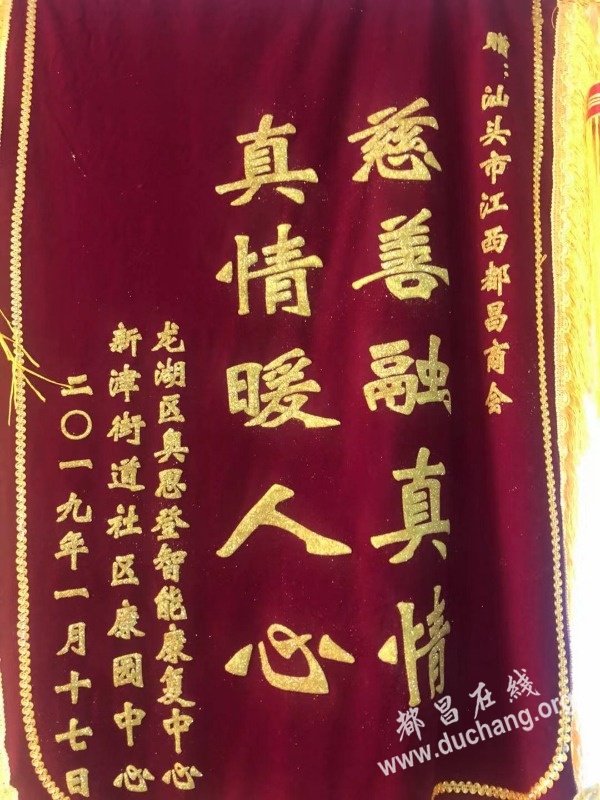 赠：汕头市江西都昌商会
慈善融真情
真情暖人心
龙湖区奥恩登智能康复中心
新津街道社区康园中心
二〇一九年一月十七日
都昌在线
www.duchang.org